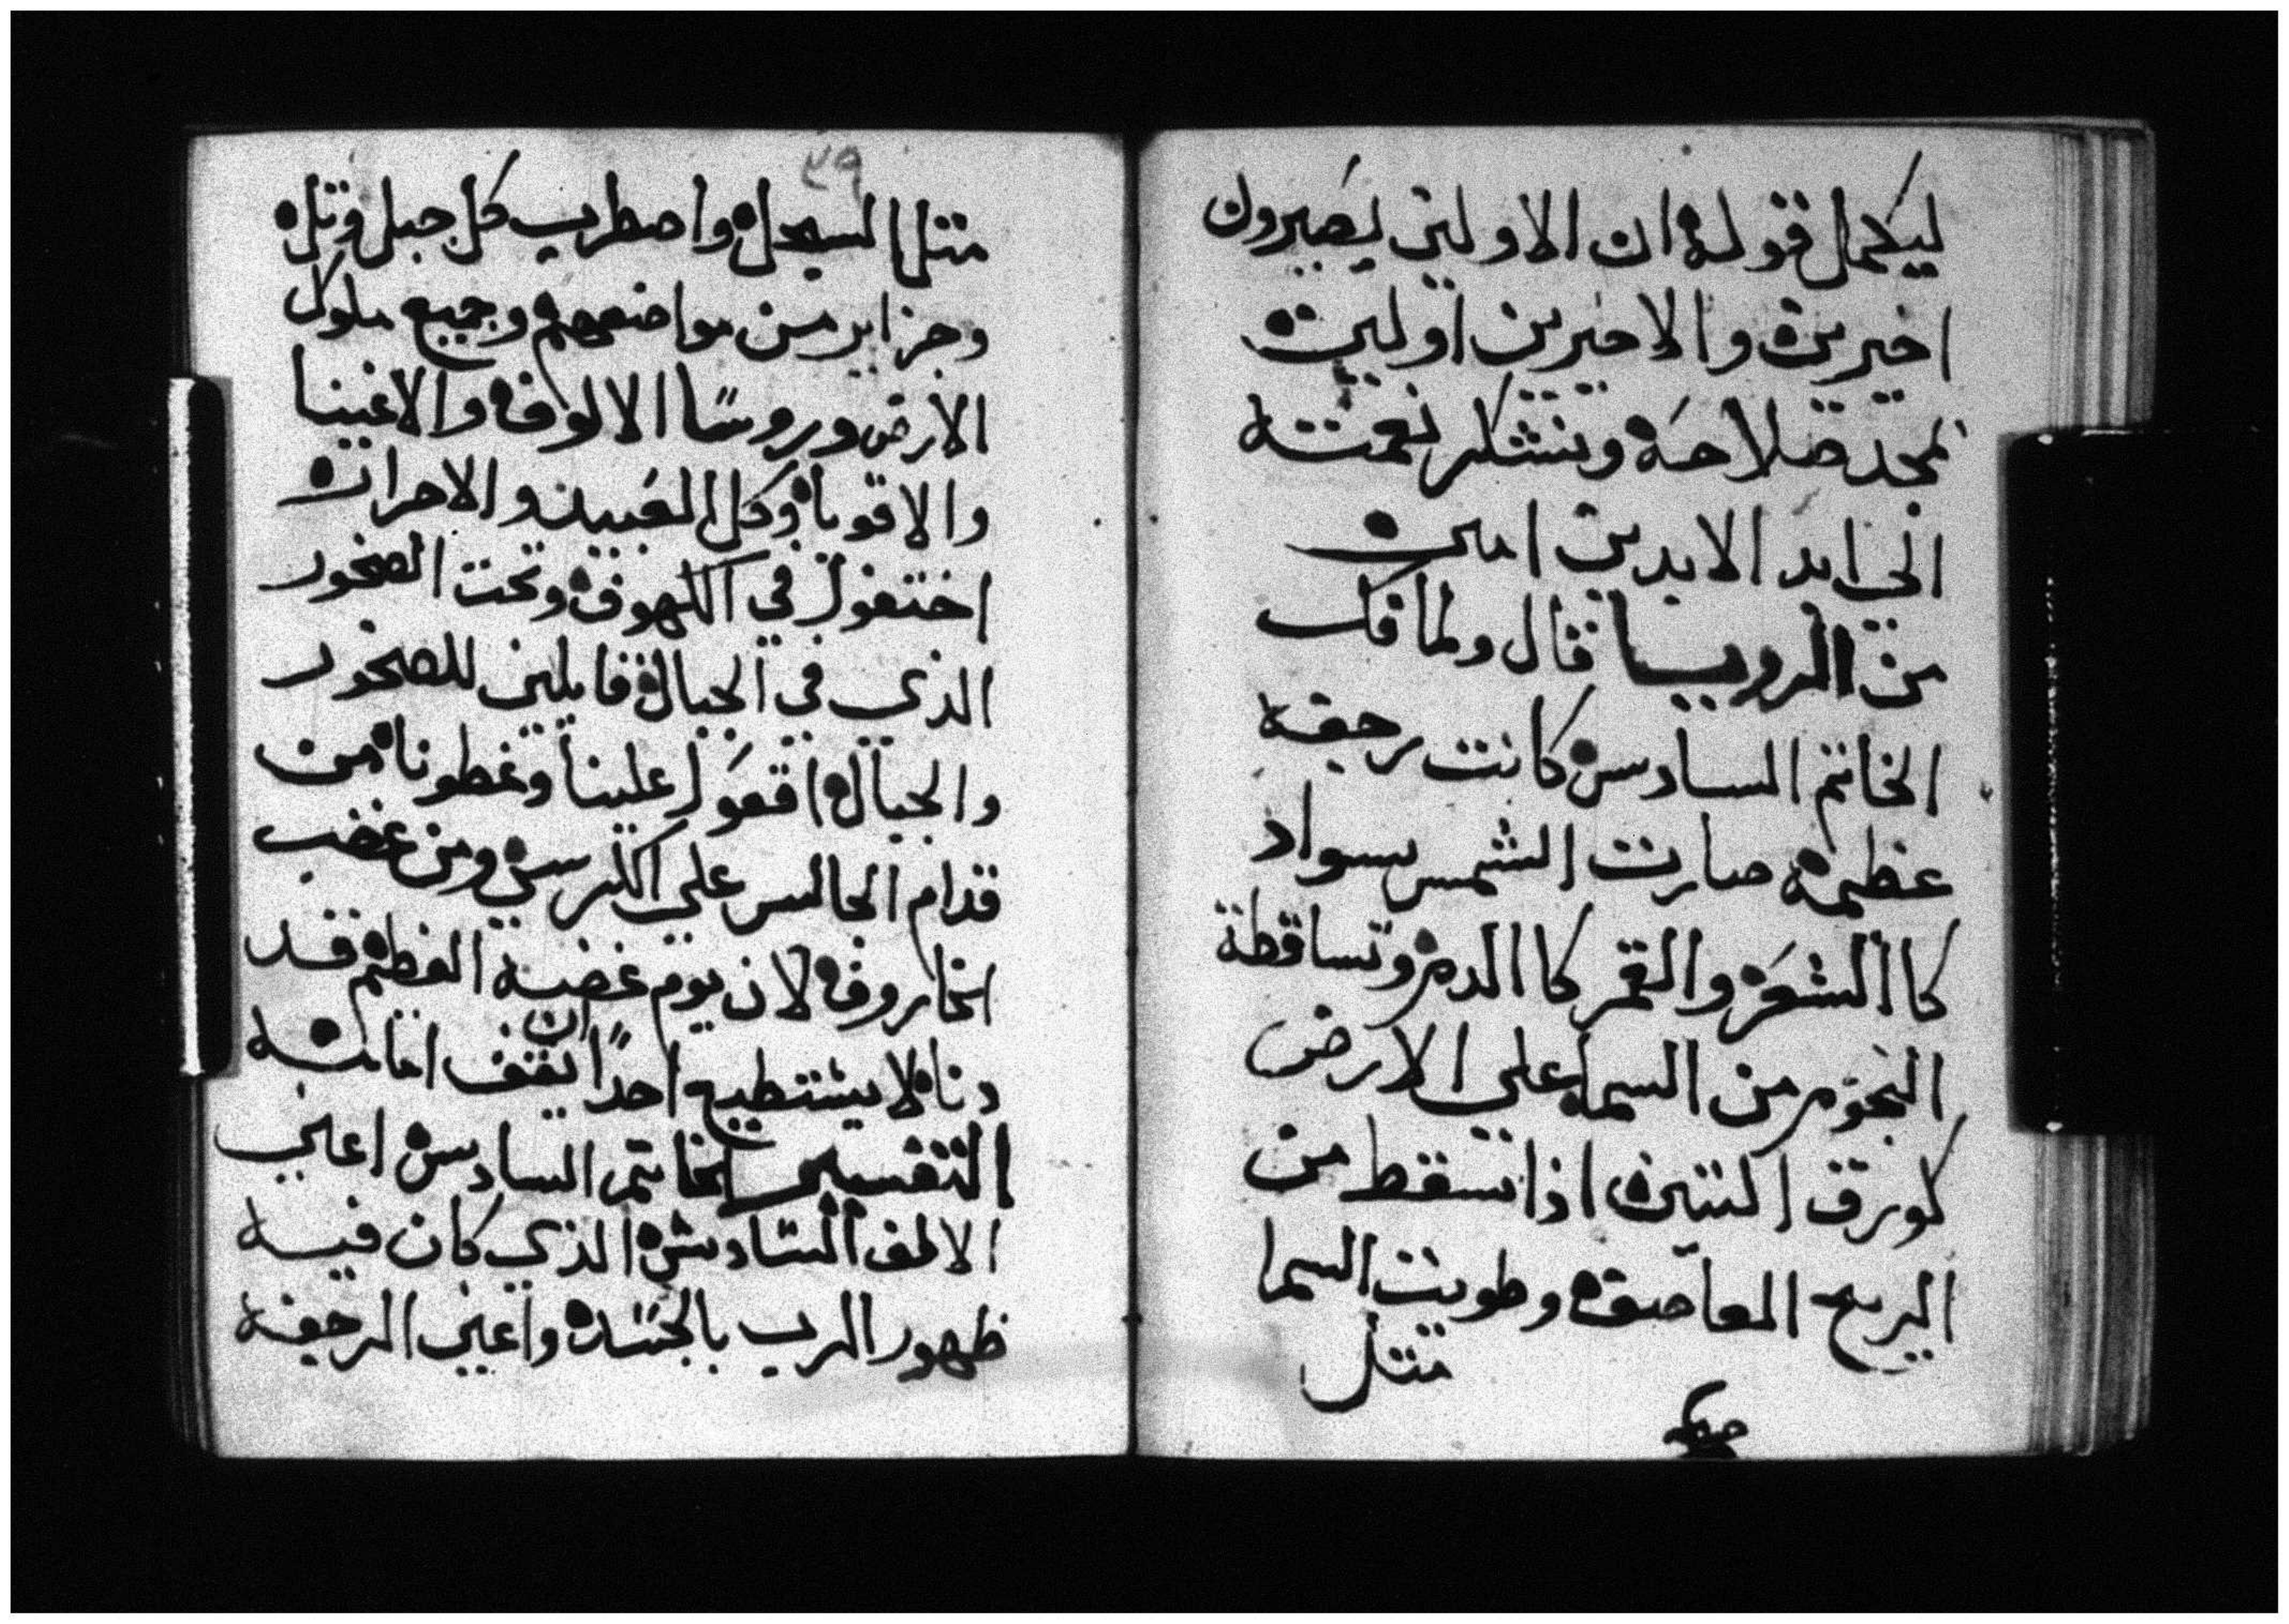 ليكمل قوله ان الاولين يصيرون
اخيرين والاخيرين اولين
نمجد صلاحه ونشكر نعمته
الي ابد الابدين امين
من الرويا قال ولما فك
الخاتم السادس كانت رجفه
عظيمه صارت الشمس سواد
كا الشعر والقمر كا الدم وتساقطة
النجوم من السما علي الارض
كورق التين اذا تسقط من
الريح العاصفه وطويت السما
متل
٢٩
متل السجل واضطرب كل جبل وتل
وجزاير من مواضعهم وجميع ملوك
الارض وروسا الالوف والاغنيا
والاقويا وكل العبيد والاحرار
اختفوا في الكهوف وتحت الصخور
الذي في الجبال قايلين للصخور
والجبال اقعوا علينا وغطونا من
قدام الجالس علي الكرسي ومن غضب
الخاروف لان يوم غضبه العظيم قد
دنا لا يستطيع احدا ان يقف امامه
التفسير الخاتم السادس اعني
الالف السادس الذي كان فيه
ظهور الرب بالجسد واعني الرجفه